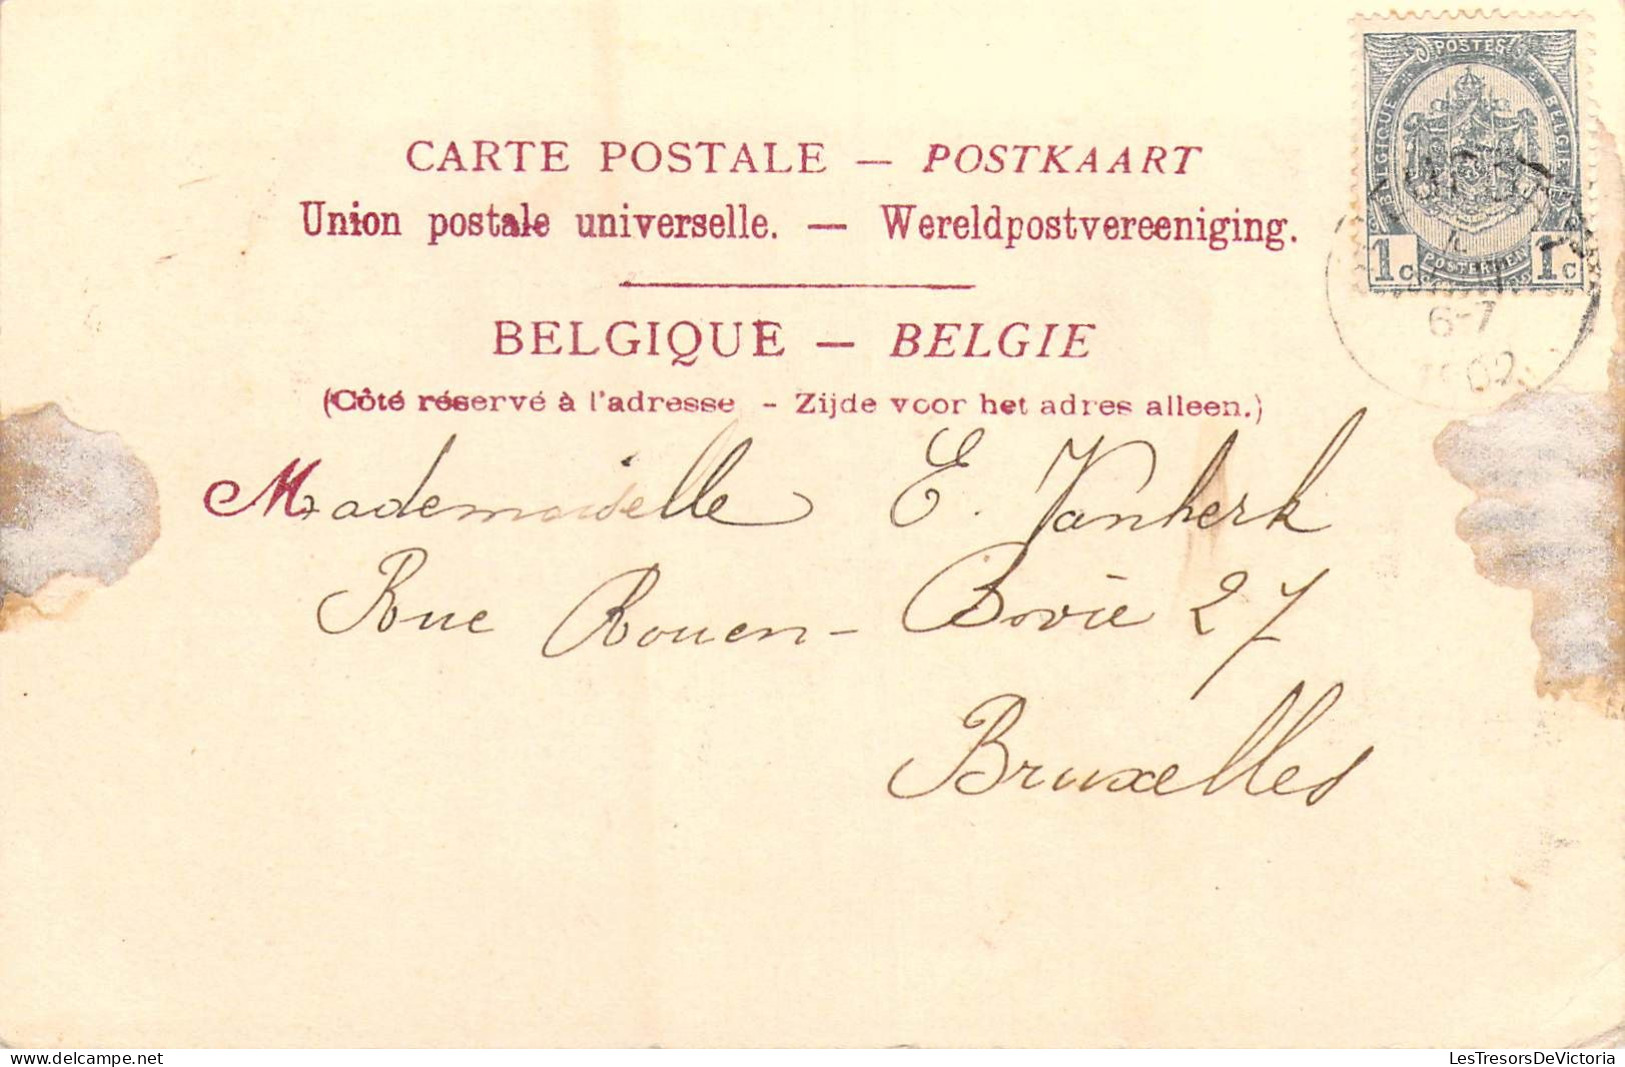 POSTES
BELGIQUE
BELGIE
POSTERIJEN
1c 1c
6-7
1902
CARTE POSTALE — POSTKAART
Union postale universelle. — Wereldpostvereeniging.
BELGIQUE — BELGIE
(Côté réservé à l'adresse - Zijde voor het adres alleen.)
Mademoiselle E. Vanherk
Rue Rouen - Bovie 27
Bruxelles
LesTresorsDeVictoria
www.delcampe.net